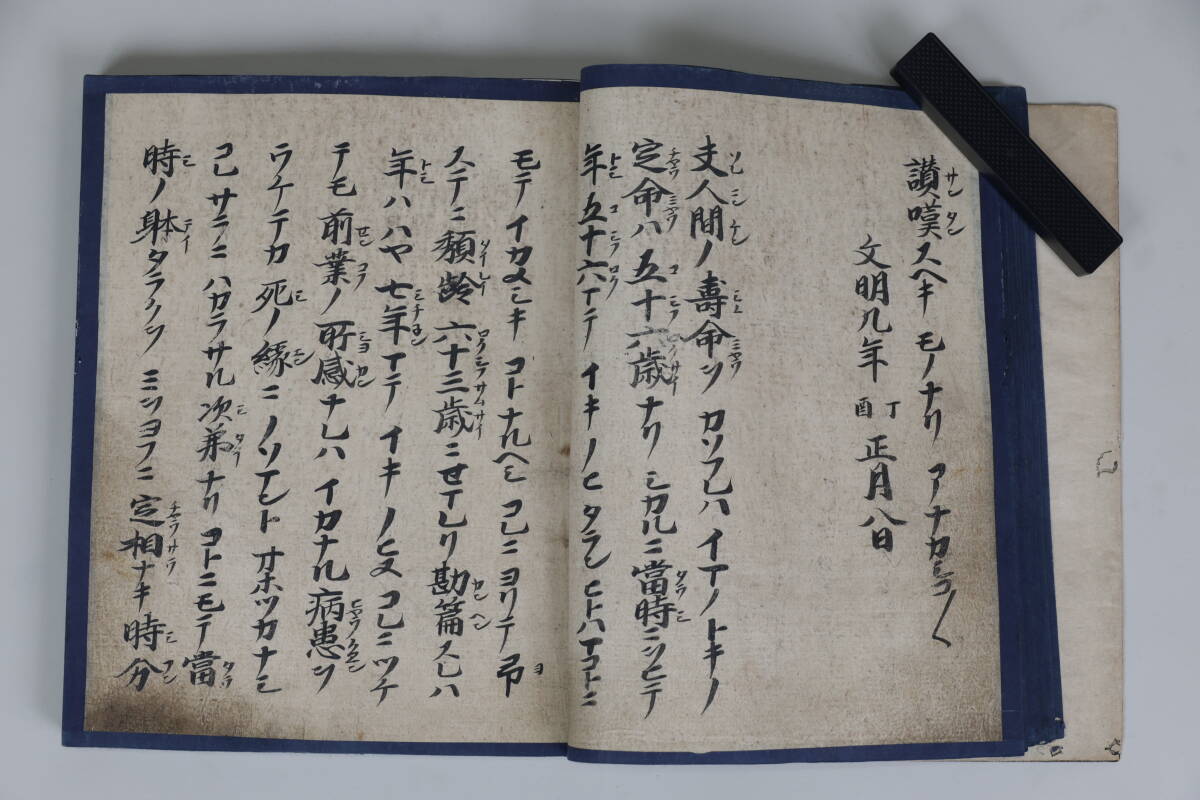 讃嘆スヘキモノナリアナカシコ〱
文明九年丁酉正月八日
夫人間ノ壽命ヲカソフレハイマノトキノ
定命ハ五十六歳ナリシカルニ當時ニヲヒテ
年五十六マテイキノヒタランヒトハマコトニ
モテイカメシキコトナルヘシコレニヨリテ予
ステニ頽齢六十三歳ニセマレリ勘篇スレハ
年ハハヤ七年マテイキノヒヌコレニツケ
テモ前業ノ所感ナレハイカナル病患ヲ
ウケテカ死ノ縁ニノソマントオホツカナシ
コレサラニハカラサル次第ナリコトニモテ當
時ノ躰タラクヲミヲヨフニ定相ナキ時分